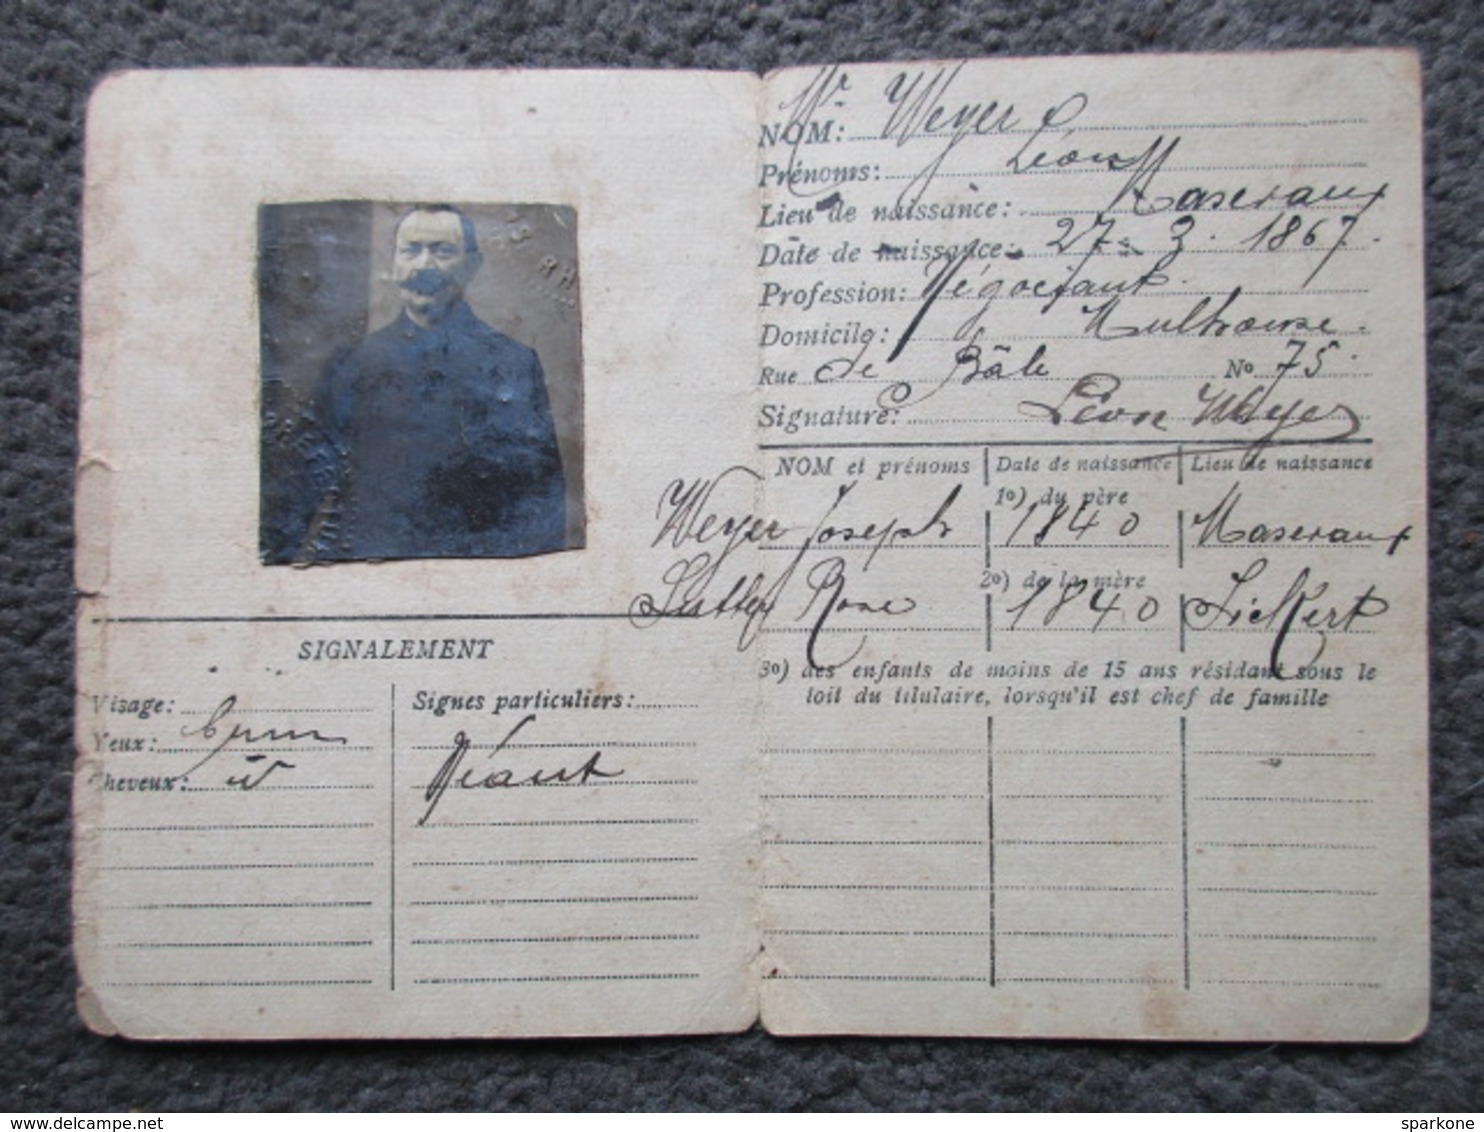 SIGNALEMENT
Visage: ovale
Yeux: brun
Cheveux: id
Signes particuliers:
Néant
Mr
NOM: Weyer
Prénoms: Léon
Lieu de naissance: Masevaux
Date de naissance: 27. 3. 1867.
Profession: Négociant.
Domicile: Mulhouse.
Rue de Bâle No 75.
Signature: Léon Weyer
NOM et prénoms Date de naissance Lieu de naissance
1o) du père
Weyer Joseph 1840 Masevaux
2o) de la mère
Rose 1840 Sickert
3o) des enfants de moins de 15 ans résidant sous le
toit du titulaire, lorsqu'il est chef de famille
www.delcampe.net
sparkone